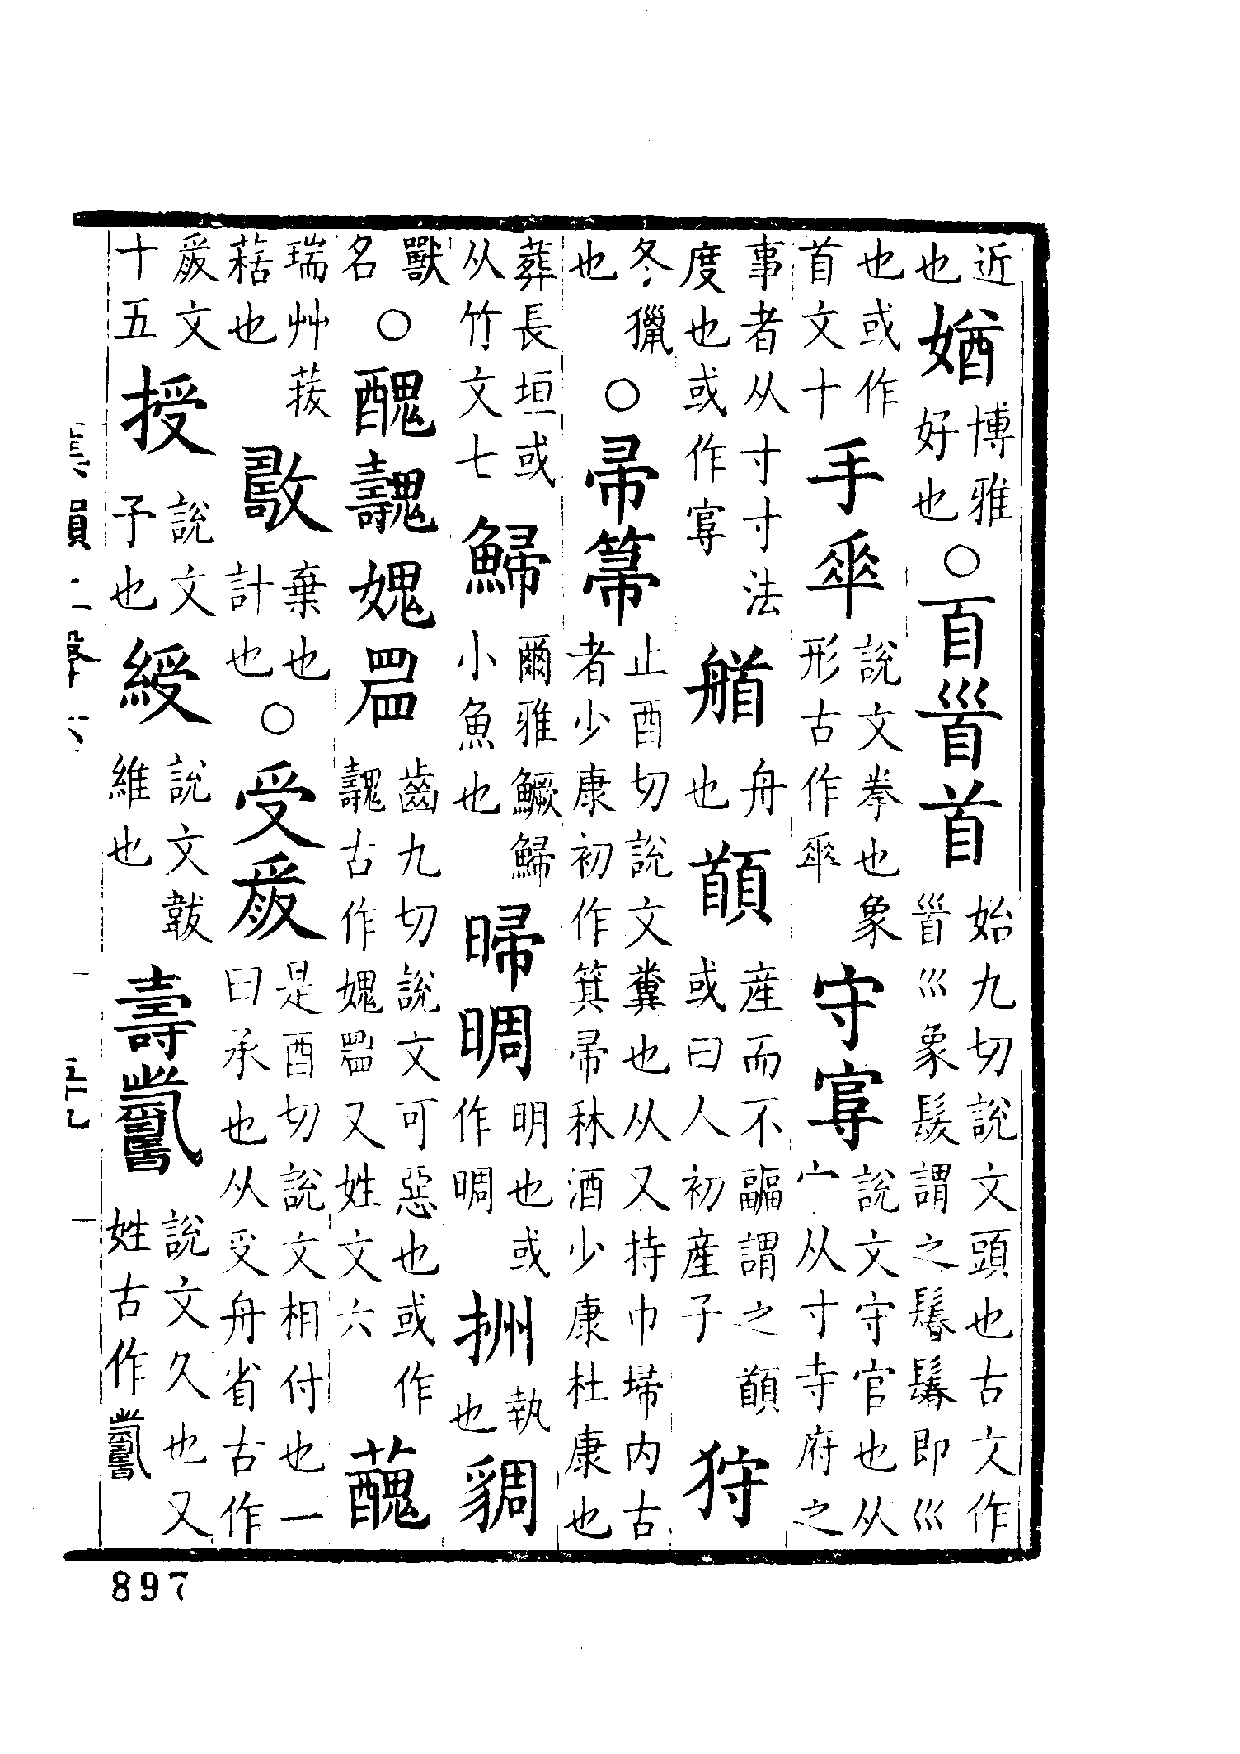 近也媨博雅好也○𦣻𩠐首始九切說文頭也古文作𩠐巛象髮謂之鬊鬊即巛
也或作首文十手說文拳也象形古作守說文守官也从宀从寸寺府之
事者从寸寸法度也或作艏舟也產而不謂之或曰人初產子狩
冬獵也○帚箒止酉切說文糞也从又持巾埽内古者少康初作箕帚秫酒少康杜康也
葬長垣或从竹文七鯞爾雅鱖鯞小魚也晭明也或作晭執也
獸名○醜媿齒九切說文可惡也或作古作媿又姓文六
瑞艸菝也棄也計也○受是酉切說文相付也一曰承也从受舟省古作
文十五授說文子也綬說文韍維也壽說文久也又姓古作
集韻上聲六
五十九
897